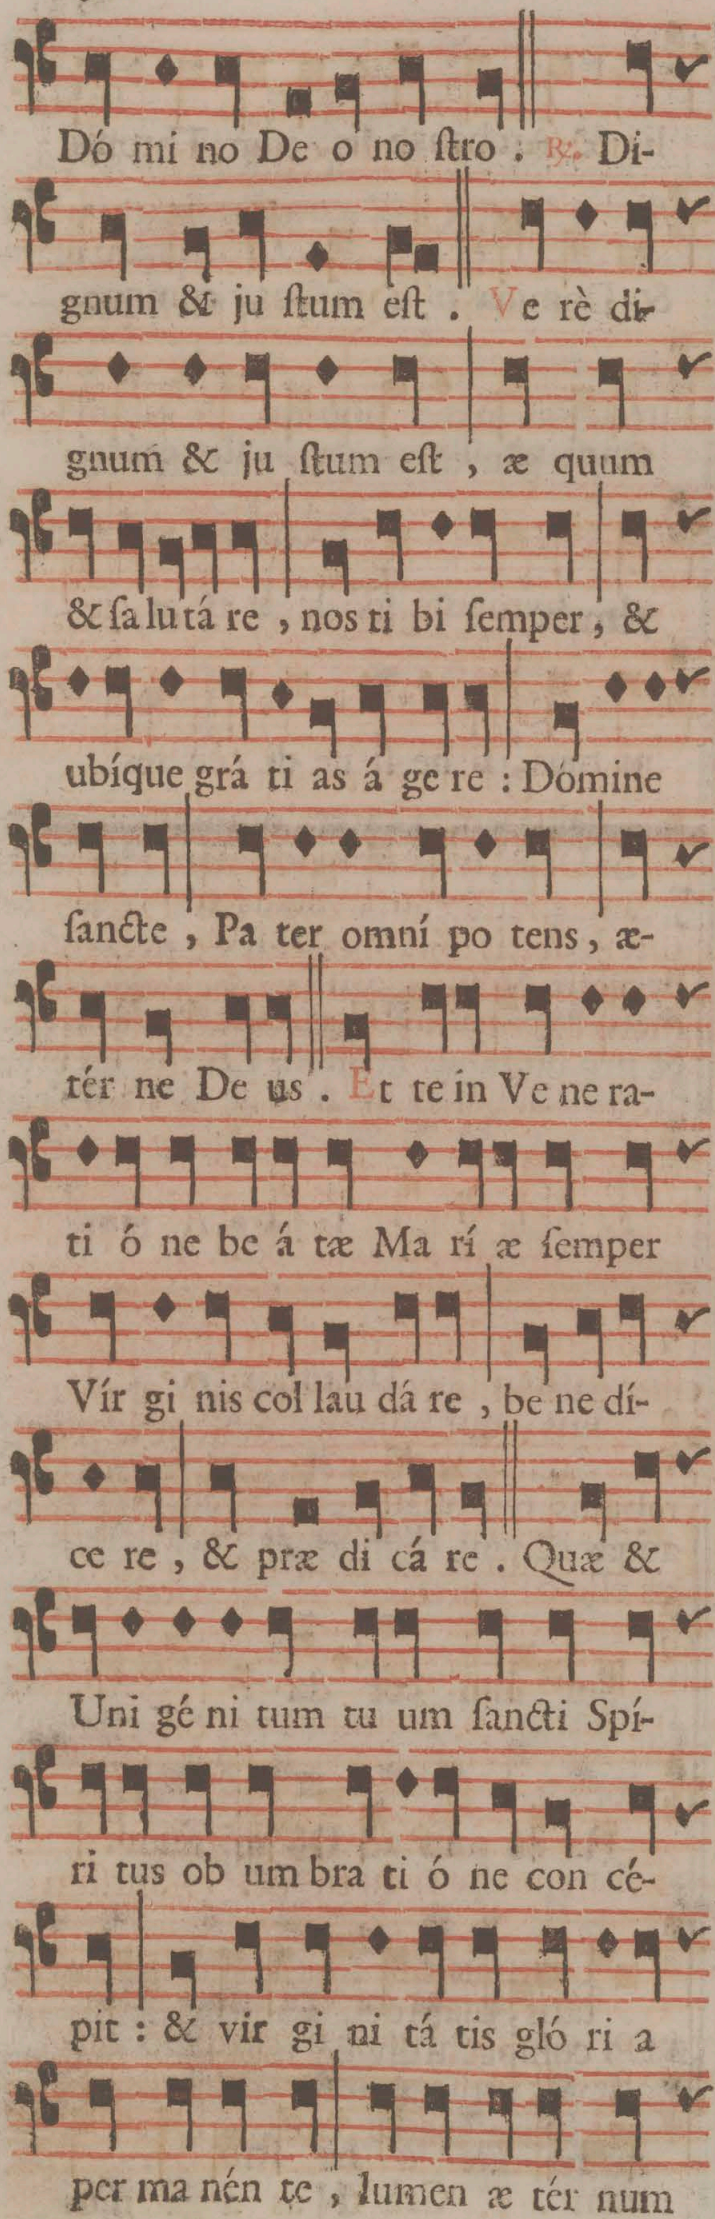 Dó mi no De o no ſtro . ℟. Di-
gnum & ju ſtum eſt . Ve rè di-
gnum & ju ſtum eſt , æ quum
& ſa lu tá re , nos ti bi ſemper , &
ubíque grá ti as á ge re : Dómine
ſancte , Pa ter omní po tens , æ-
tér ne De us . Et te in Ve ne ra-
ti ó ne be á tæ Ma rí æ ſemper
Vír gi nis col lau dá re , be ne dí-
ce re , & præ di cá re . Quæ &
Uni gé ni tum tu um ſancti Spí-
ri tus ob um bra ti ó ne con cé-
pit : & vir gi ni tá tis gló ri a
per ma nén te , lumen æ tér num